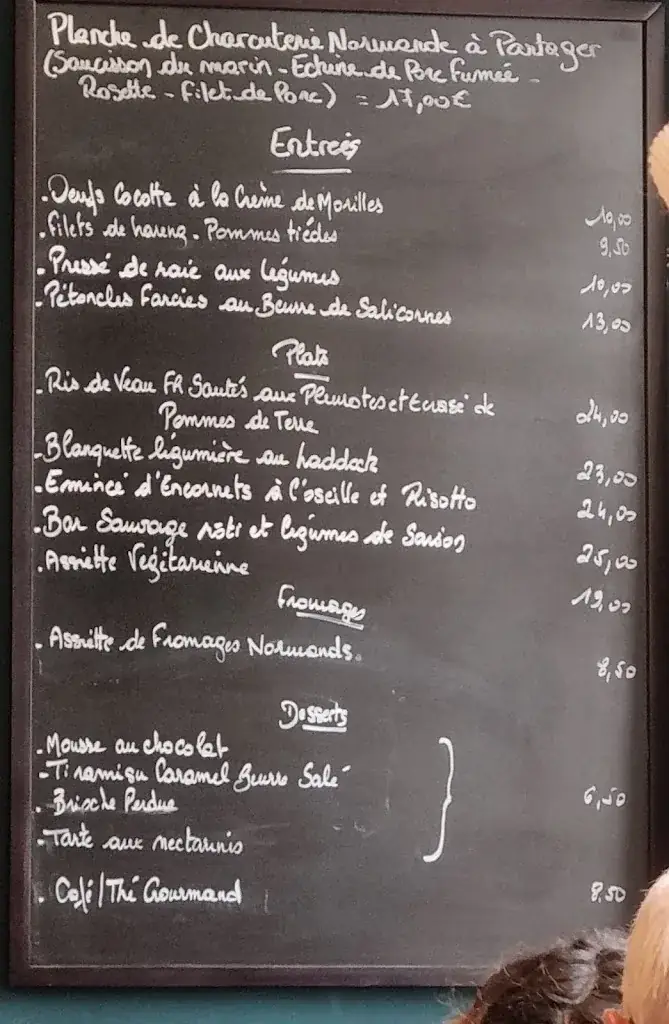 Planche de Charcuterie Normande à Partager
(Saucisson du marin - Echine de Porc Fumée -
Rosette - Filet de Porc) = 17,00€
Entrées
. Oeufs Cocotte à la Crème de Morilles 10,00
. Filets de hareng. Pommes tiédes 9,50
. Pressé de raie aux légumes 10,00
. Pétoncles Farcies au Beurre de Salicornes 13,00
Plats
. Ris de Veau FR Sautés aux Pleurotes et Ecrasé de
Pommes de Terre 24,00
. Blanquette légumière au haddock 23,00
. Emincé d'Encornets à l'oseille et Risotto 24,00
. Bar Sauvage rôti et légumes de Saison 25,00
. Assiette Végétarienne 19,00
Fromages
. Assiette de Fromages Normands. 8,50
Desserts
. Mousse au chocolat
- Tiramisu Caramel Beurre Salé
. Brioche Perdue 6,50
. Tarte aux nectarinis
. Café/Thé Gourmand 8,50